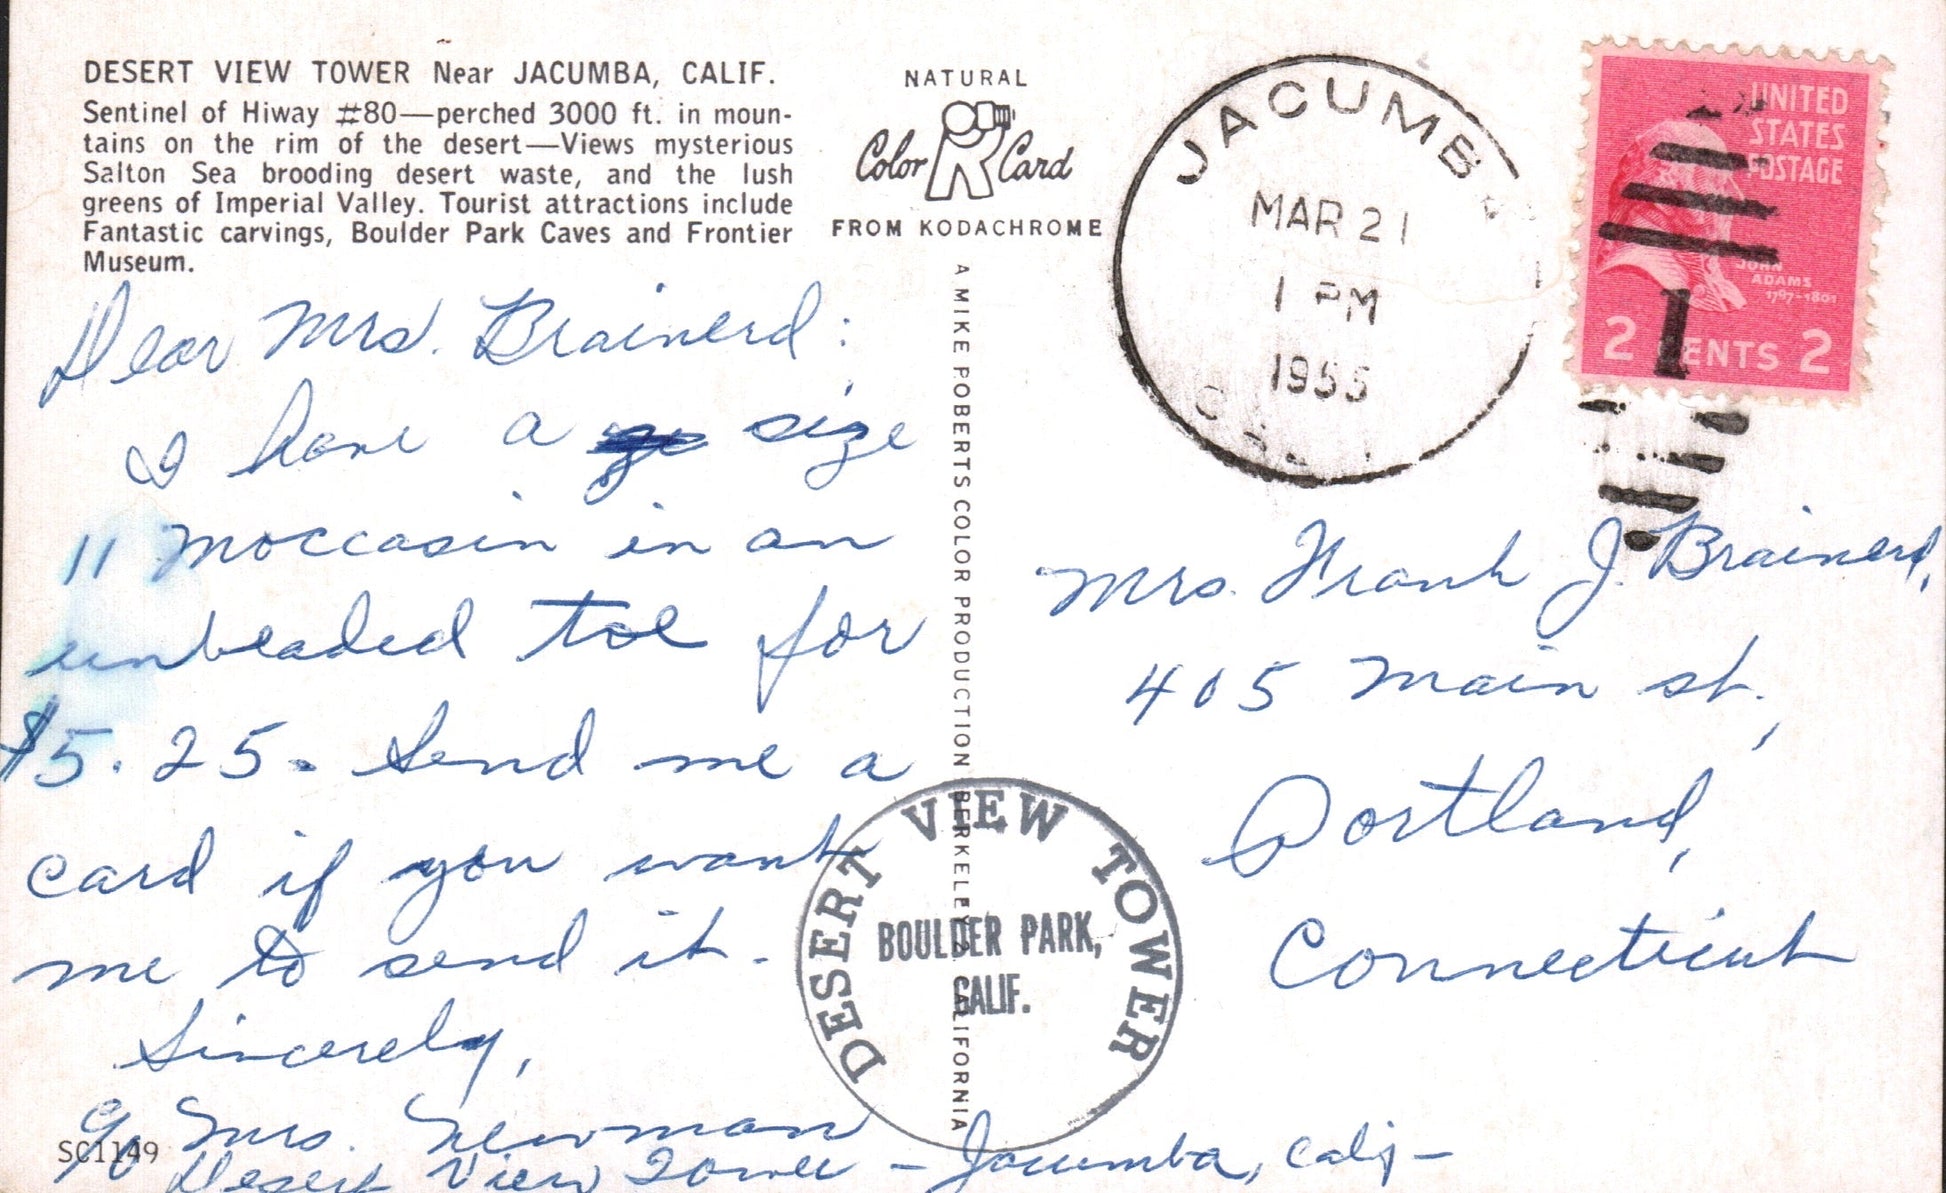 DESERT VIEW TOWER Near JACUMBA, CALIF.
Sentinel of Hiway #80—perched 3000 ft. in moun-
tains on the rim of the desert—Views mysterious
Salton Sea brooding desert waste, and the lush
greens of Imperial Valley. Tourist attractions include
Fantastic carvings, Boulder Park Caves and Frontier
Museum.
NATURAL
Color Card
FROM KODACHROME
A MIKE ROBERTS COLOR PRODUCTION BERKELEY 2 CALIFORNIA
JACUMB
MAR 21
1 PM
1955
CAL
UNITED
STATES
POSTAGE
JOHN
ADAMS
1797-1801
2 CENTS 2
Dear Mrs. Brainerd:
I have a size
11 moccasin in an
unbeaded toe for
$5.25. Send me a
card if you want
me to send it.
Sincerely,
Mrs. Newman
c/o Desert View Tower - Jacumba, Calif -
SC1149
Mrs. Frank J. Brainerd,
405 Main st.,
Portland,
Connecticut
DESERT VIEW TOWER
BOULDER PARK,
CALIF.